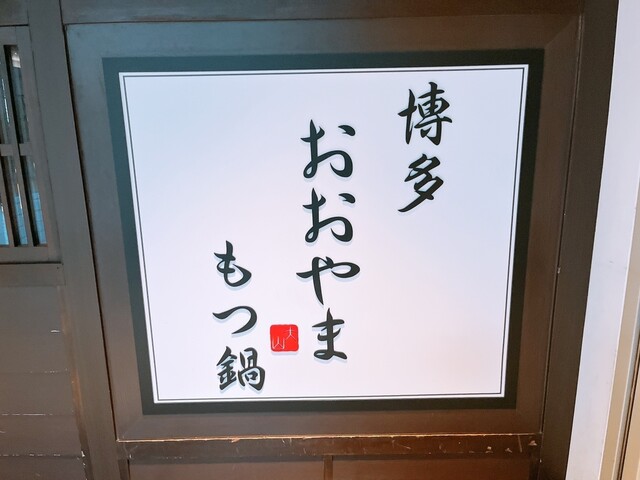 博多
おおやま
もつ鍋
大山